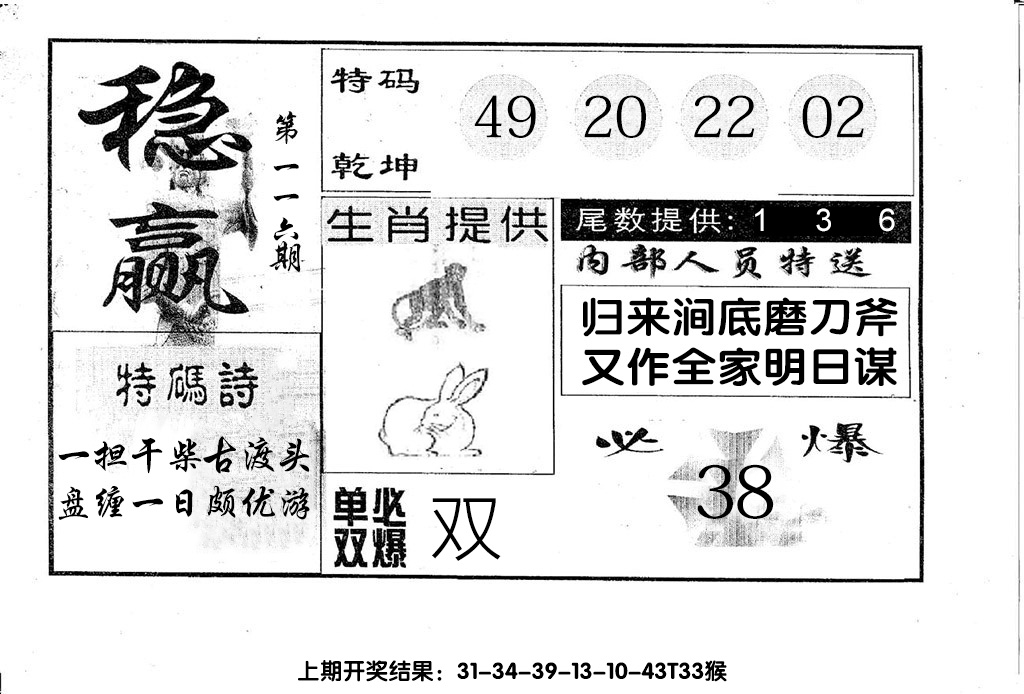 稳赢
第一一六期
特码诗
一担干柴古渡头
盘缠一日颇优游
特码
乾坤
49 20 22 02
生肖提供
单双必爆
双
尾数提供: 1 3 6
内部人员特送
归来涧底磨刀斧
又作全家明日谋
必爆
38
上期开奖结果：31-34-39-13-10-43T33猴